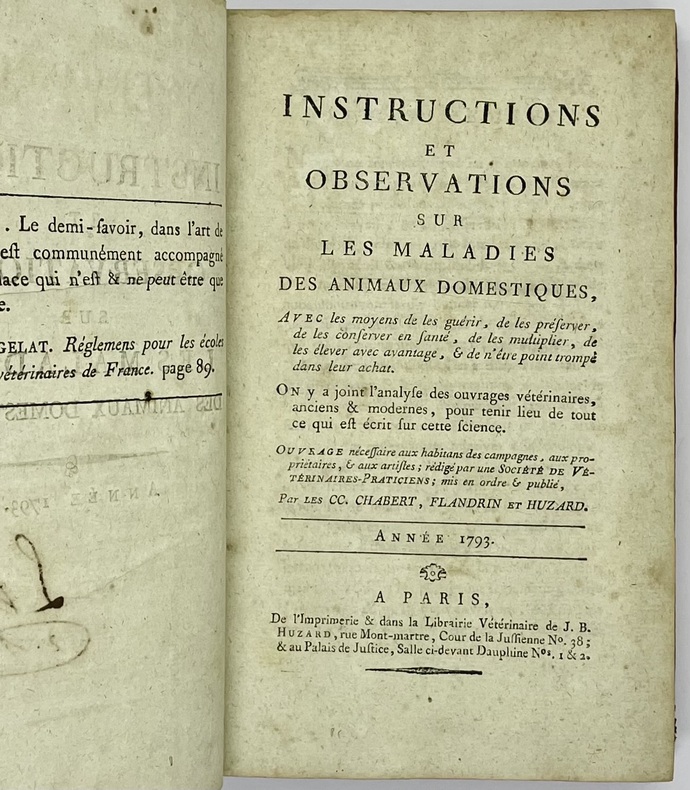 . Le demi-ſavoir, dans l'art de
eſt communément accompagné
lace qui n'eſt & ne peut être que
e.
GELAT. Réglemens pour les écoles
vétérinaires de France. page 89.
INSTRUCTIONS
ET
OBSERVATIONS
SUR
LES MALADIES
DES ANIMAUX DOMESTIQUES,
AVEC les moyens de les guérir, de les préſerver,
de les conſerver en ſanté, de les multiplier, de
les élever avec avantage, & de n'être point trompé
dans leur achat.
ON y a joint l'analyſe des ouvrages vétérinaires,
anciens & modernes, pour tenir lieu de tout
ce qui eſt écrit ſur cette ſcience.
OUVRAGE néceſſaire aux habitans des campagnes, aux pro-
priétaires, & aux artiſtes; rédigé par une SOCIÉTÉ DE VÉ-
TÉRINAIRES-PRATICIENS; mis en ordre & publié,
Par LES CC. CHABERT, FLANDRIN ET HUZARD.
ANNÉE 1793.
A PARIS,
De l'Imprimerie & dans la Librairie Vétérinaire de J. B.
HUZARD, rue Mont-martre, Cour de la Juſſienne No. 38;
& au Palais de Juſtice, Salle ci-devant Dauphine Nos. 1 & 2.